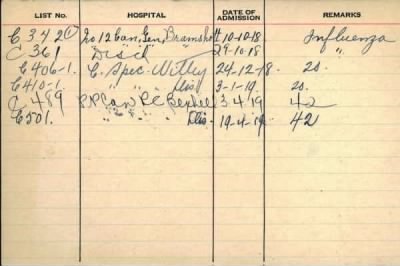 LIST No. HOSPITAL DATE OF ADMISSION REMARKS
C 342(1) No 12 Can. Gen. Bramshott 10-10-18 Influenza
C 361 Disch 29-10-18 "
C 406-1. C. Spec. Witley 24-12-18 20.
C 410-1. " " Dis. 3-1-19 20.
C 489 Can Bexhill 3-4-19 42
C 501. " " " Dis. 19-4-19. 42